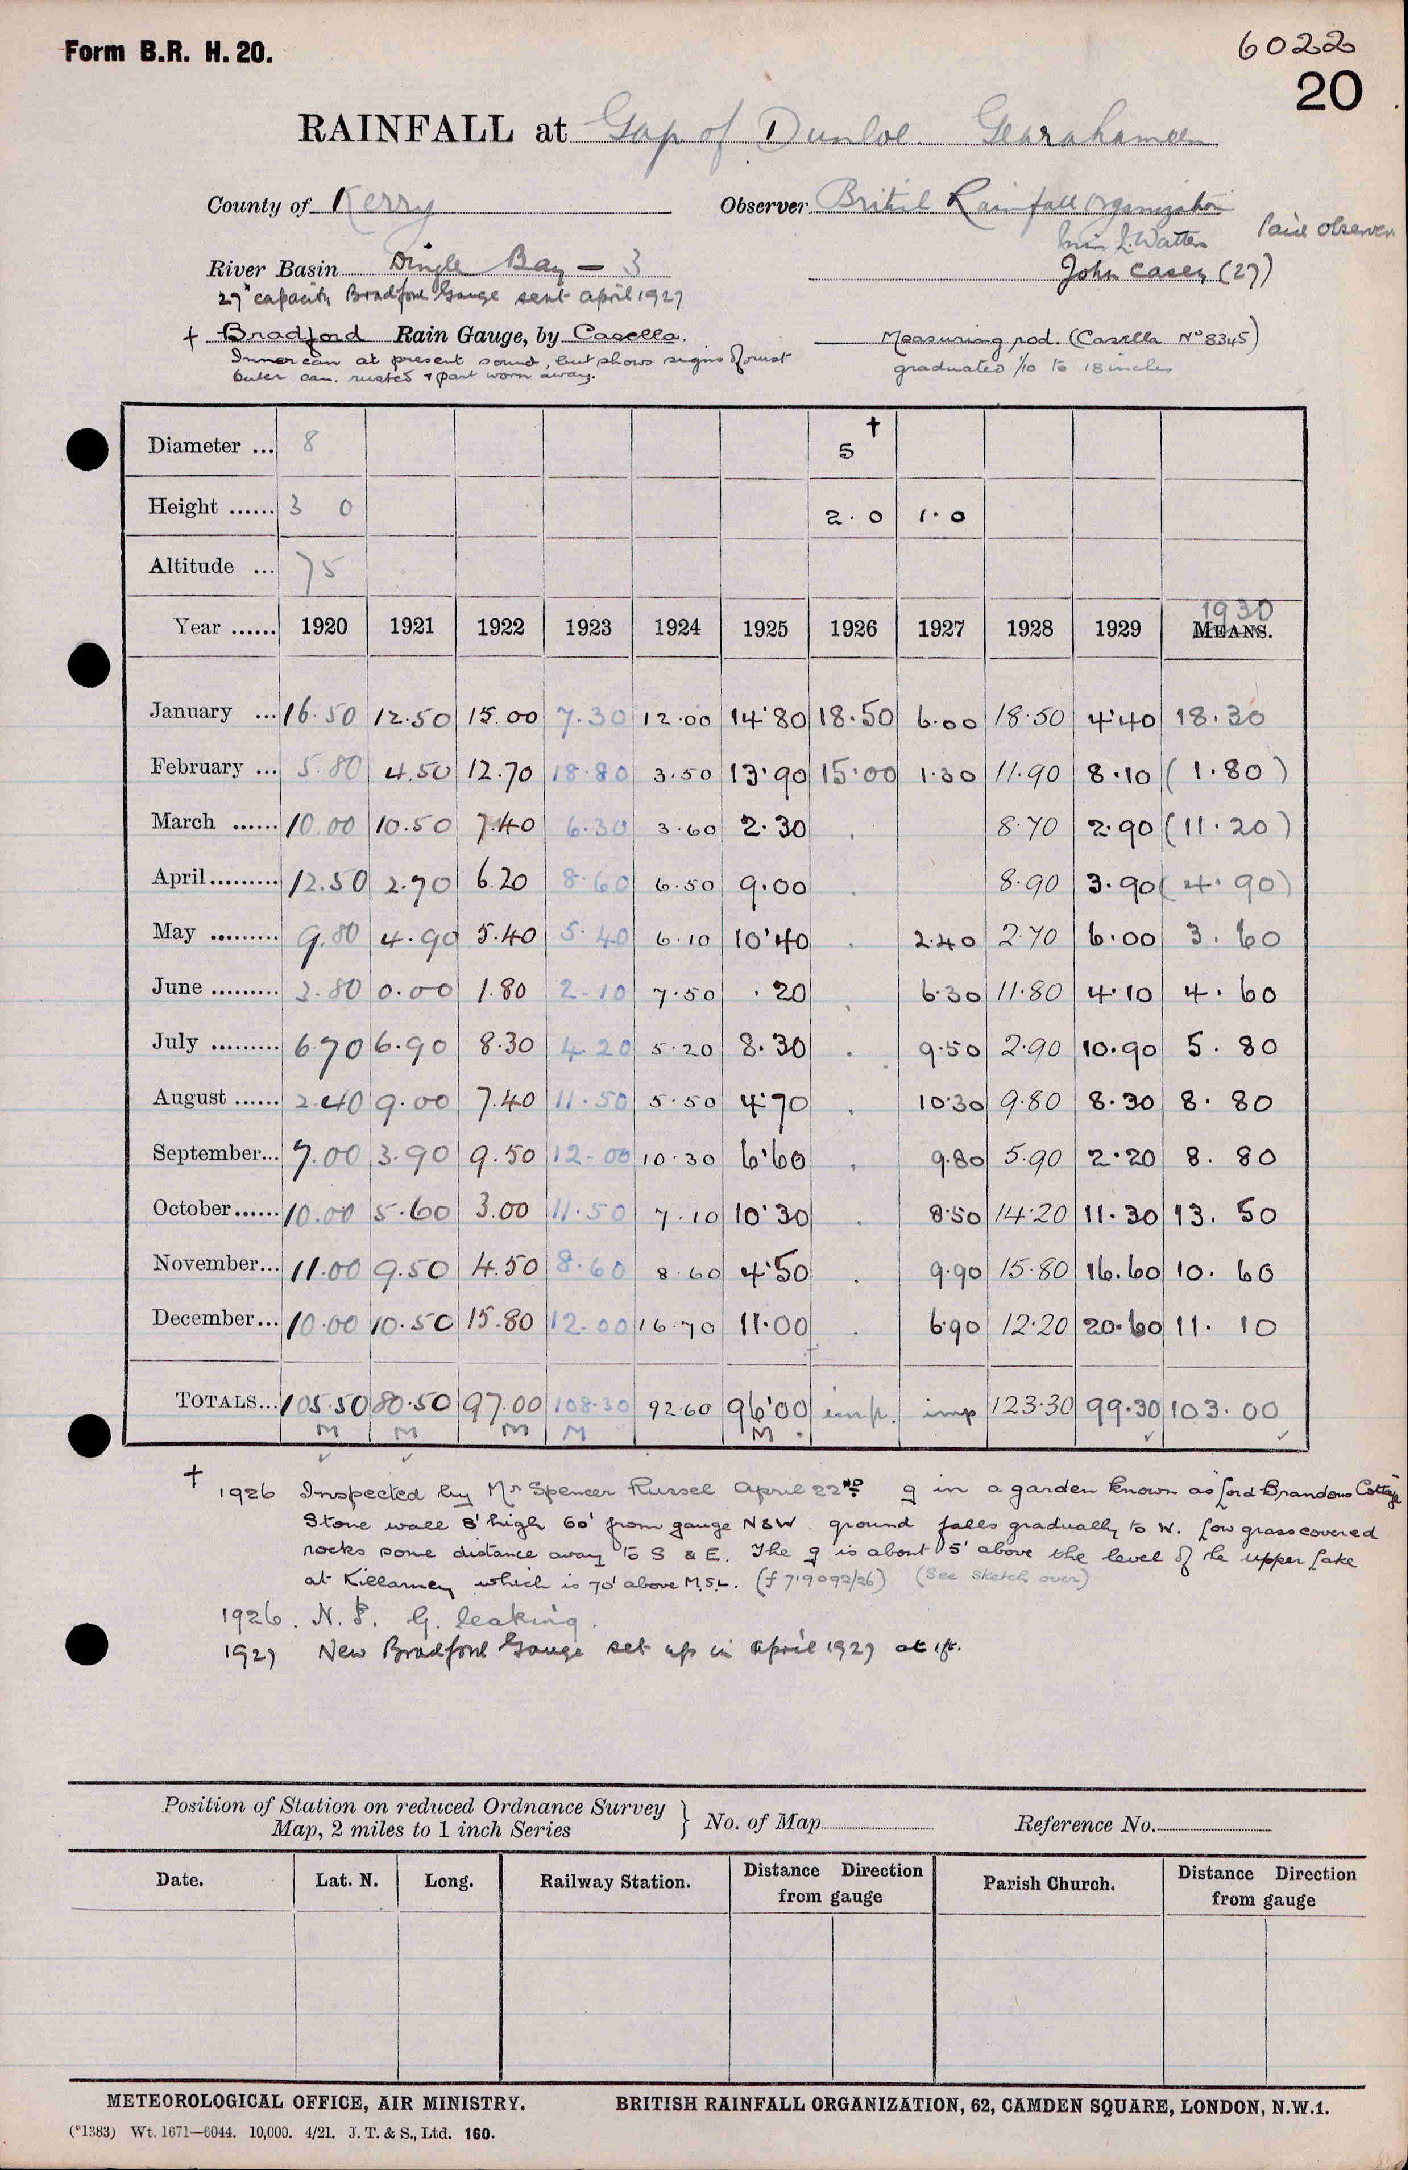 Form B.R. H. 20.
6022
20
RAINFALL at Gap of Dunloe. Gearahameen
County of Kerry Observer British Rainfall Organization
Paid observer
River Basin Dingle Bay — 3
John Casey (27)
27" capacity Bradford Gauge sent April 1927
† Bradford Rain Gauge, by Casella. Measuring rod. (Casella No 8345)
Inner can at present sound, but shows signs of rust graduated 1/10 to 18 inches
Outer can. rusted & part worn away.
Diameter ... 8 5 †
Height ...... 3 0 2. 0 1. 0
Altitude ... 75
Year ...... 1920 1921 1922 1923 1924 1925 1926 1927 1928 1929 MEANS. 1930
January ... 16.50 12.50 15.00 7.30 12.00 14.80 18.50 6.00 18.50 4.40 18.30
February ... 5.80 4.50 12.70 18.80 3.50 13.90 15.00 1.30 11.90 8.10 (1.80)
March ...... 10.00 10.50 7.40 6.30 3.60 2.30 . 8.70 2.90 (11.20)
April......... 12.50 2.70 6.20 8.60 6.50 9.00 . 8.90 3.90 (4.90)
May ......... 9.80 4.90 5.40 5.40 6.10 10.40 . 2.40 2.70 6.00 3.60
June ......... 3.80 0.00 1.80 2.10 7.50 .20 . 6.30 11.80 4.10 4.60
July ......... 6.70 6.90 8.30 4.20 5.20 8.30 . 9.50 2.90 10.90 5.80
August ...... 2.40 9.00 7.40 11.50 5.50 4.70 . 10.30 9.80 8.30 8.80
September... 7.00 3.90 9.50 12.00 10.30 6.60 . 9.80 5.90 2.20 8.80
October...... 10.00 5.60 3.00 11.50 7.10 10.30 . 8.50 14.20 11.30 13.50
November... 11.00 9.50 4.50 8.60 8.60 4.50 . 9.90 15.80 16.60 10.60
December... 10.00 10.50 15.80 12.00 16.70 11.00 . 6.90 12.20 20.60 11.10
TOTALS... 105.50 80.50 97.00 108.30 92.60 96.00 imp. imp 123.30 99.30 103.00
M M M M M
† 1926 Inspected by Mr Spencer Russel April 22nd g in a garden known as Lord Brandons Cottage
Stone wall 8' high 60' from gauge N & W ground falls gradually to W. Low grass covered
rocks some distance away to S & E. The g is about 5' above the level of the upper lake
at Killarney which is 70' above M.S.L. (f 719092/26) (See sketch over)
1926. G. leaking.
1927 New Bradford Gauge set up in April 1927 at 1ft.
Position of Station on reduced Ordnance Survey
Map, 2 miles to 1 inch Series } No. of Map Reference No.
Date. Lat. N. Long. Railway Station. Distance Direction from gauge Parish Church. Distance Direction from gauge
METEOROLOGICAL OFFICE, AIR MINISTRY. BRITISH RAINFALL ORGANIZATION, 62, CAMDEN SQUARE, LONDON, N.W.1.
(*1383) Wt. 1671—6044. 10,000. 4/21. J. T. & S., Ltd. 160.